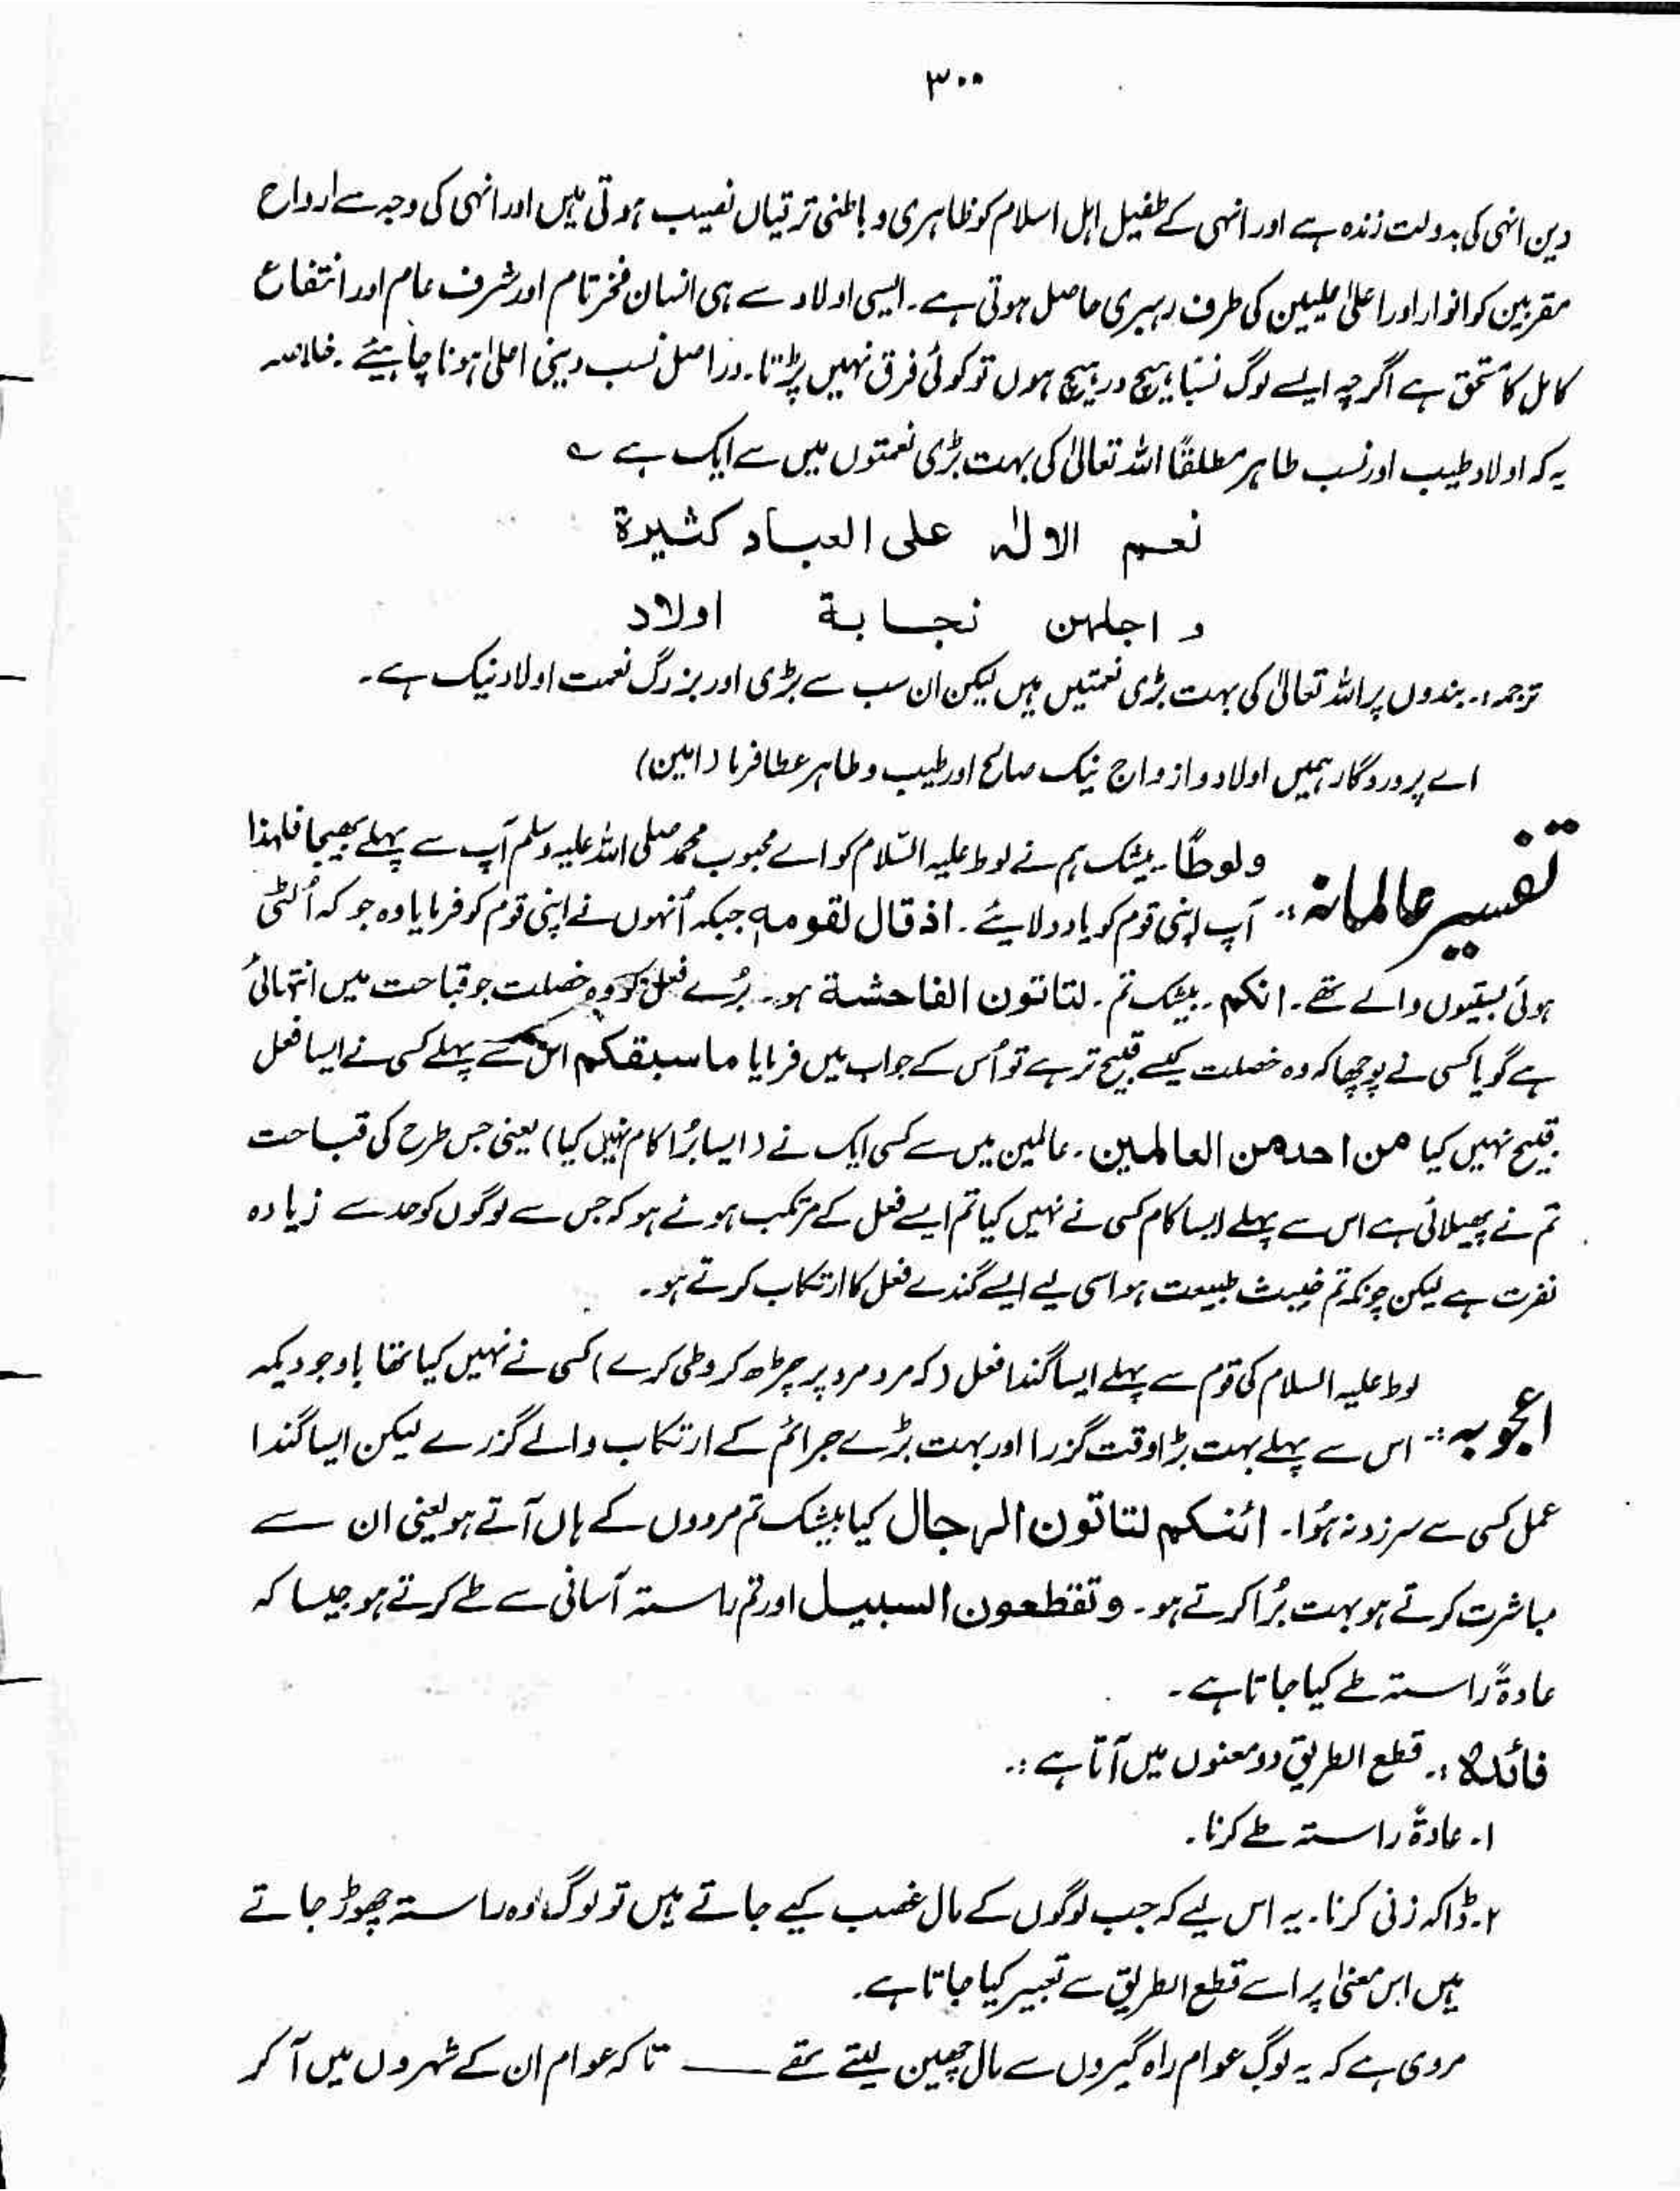 ۳۰۰
دین انہی کی بدولت زندہ ہے اور انہی کے طفیل اہل اسلام کو ظاہری و باطنی ترقیاں نصیب ہوتی ہیں اور انہی کی وجہ سے ارواح
مقربین کو انوار اور اعلیٰ علیین کی طرف رہبری حاصل ہوتی ہے۔ ایسی اولاد سے ہی انسان فخر تام اور شرف عام اور انتفاع
کامل کا مستحق ہے اگرچہ ایسے لوگ نسبًا ہیچ در ہیچ ہوں تو کوئی فرق نہیں پڑتا۔ دراصل نسب دینی اعلیٰ ہونا چاہیئے۔ خلاصہ
یہ کہ اولاد طیب اور نسب طاہر مطلقًا اللہ تعالیٰ کی بہت بڑی نعمتوں میں سے ایک ہے ؎
نعم الالٰہ علی العباد کثیرة
و اجلہن نجابة اولاد
ترجمہ:۔ بندوں پر اللہ تعالیٰ کی بہت بڑی نعمتیں ہیں لیکن ان سب سے بڑی اور بزرگ نعمت اولاد نیک ہے۔
اے پروردگار ہمیں اولاد و ازواج نیک صالح اور طیب و طاہر عطا فرما (امین)
تفسیر عالمانہ:۔ ولوطًا۔ بیشک ہم نے لوط علیہ السّلام کو اے محبوب محمد صلی اللہ علیہ وسلم آپ سے پہلے بھیجا فلہٰذا
آپ اپنی قوم کو یاد دلایئے۔ اذ قال لقومہٖ جبکہ اُنہوں نے اپنی قوم کو فرمایا وہ جو کہ اُلٹی
ہوئی بستیوں والے تھے۔ انکم۔ بیشک تم۔ لتاتون الفاحشة ہو۔ بُرے فعل کو وہ خصلت جو قباحت میں انتہائی
ہے گویا کسی نے پوچھا کہ وہ خصلت کیسے قبیح تر ہے تو اُس کے جواب میں فرمایا ماسبقکم اس سے پہلے کسی نے ایسا فعل
قبیح نہیں کیا من احد من العالمین۔ عالمین میں سے کسی ایک نے (ایسا بُرا کام نہیں کیا) یعنی جس طرح کی قباحت
تم نے پھیلائی ہے اس سے پہلے ایسا کام کسی نے نہیں کیا تم ایسے فعل کے مرتکب ہوئے ہو کہ جس سے لوگوں کو حد سے زیادہ
نفرت ہے لیکن چونکہ تم خبیث طبیعت ہو اسی لیے ایسے گندے فعل کا ارتکاب کرتے ہو۔
اعجوبہ:۔ لوط علیہ السلام کی قوم سے پہلے ایسا گندا فعل (کہ مرد مرد پر چڑھ کر وطی کرے) کسی نے نہیں کیا تھا باوجودیکہ
اس سے پہلے بہت بڑا وقت گزرا اور بہت بڑے جرائم کے ارتکاب والے گزرے لیکن ایسا گندا
عمل کسی سے سرزد نہ ہؤا۔ ائنکم لتاتون الرجال کیا بیشک تم مردوں کے ہاں آتے ہو یعنی ان سے
مباشرت کرتے ہو بہت بُرا کرتے ہو۔ وتقطعون السبیل اور تم راستہ آسانی سے طے کرتے ہو جیسا کہ
عادةً راستہ طے کیا جاتا ہے۔
فائدہ:۔ قطع الطریق دو معنوں میں آتا ہے:۔
۱۔ عادةً راستہ طے کرنا۔
۲۔ ڈاکہ زنی کرنا۔ یہ اس لیے کہ جب لوگوں کے مال غصب کیے جاتے ہیں تو لوگ وہ راستہ چھوڑ جاتے
ہیں اس معنیٰ پر اسے قطع الطریق سے تعبیر کیا جاتا ہے۔
مروی ہے کہ یہ لوگ عوام راہ گیروں سے مال چھین لیتے تھے ــــ تا کہ عوام ان کے شہروں میں آ کر